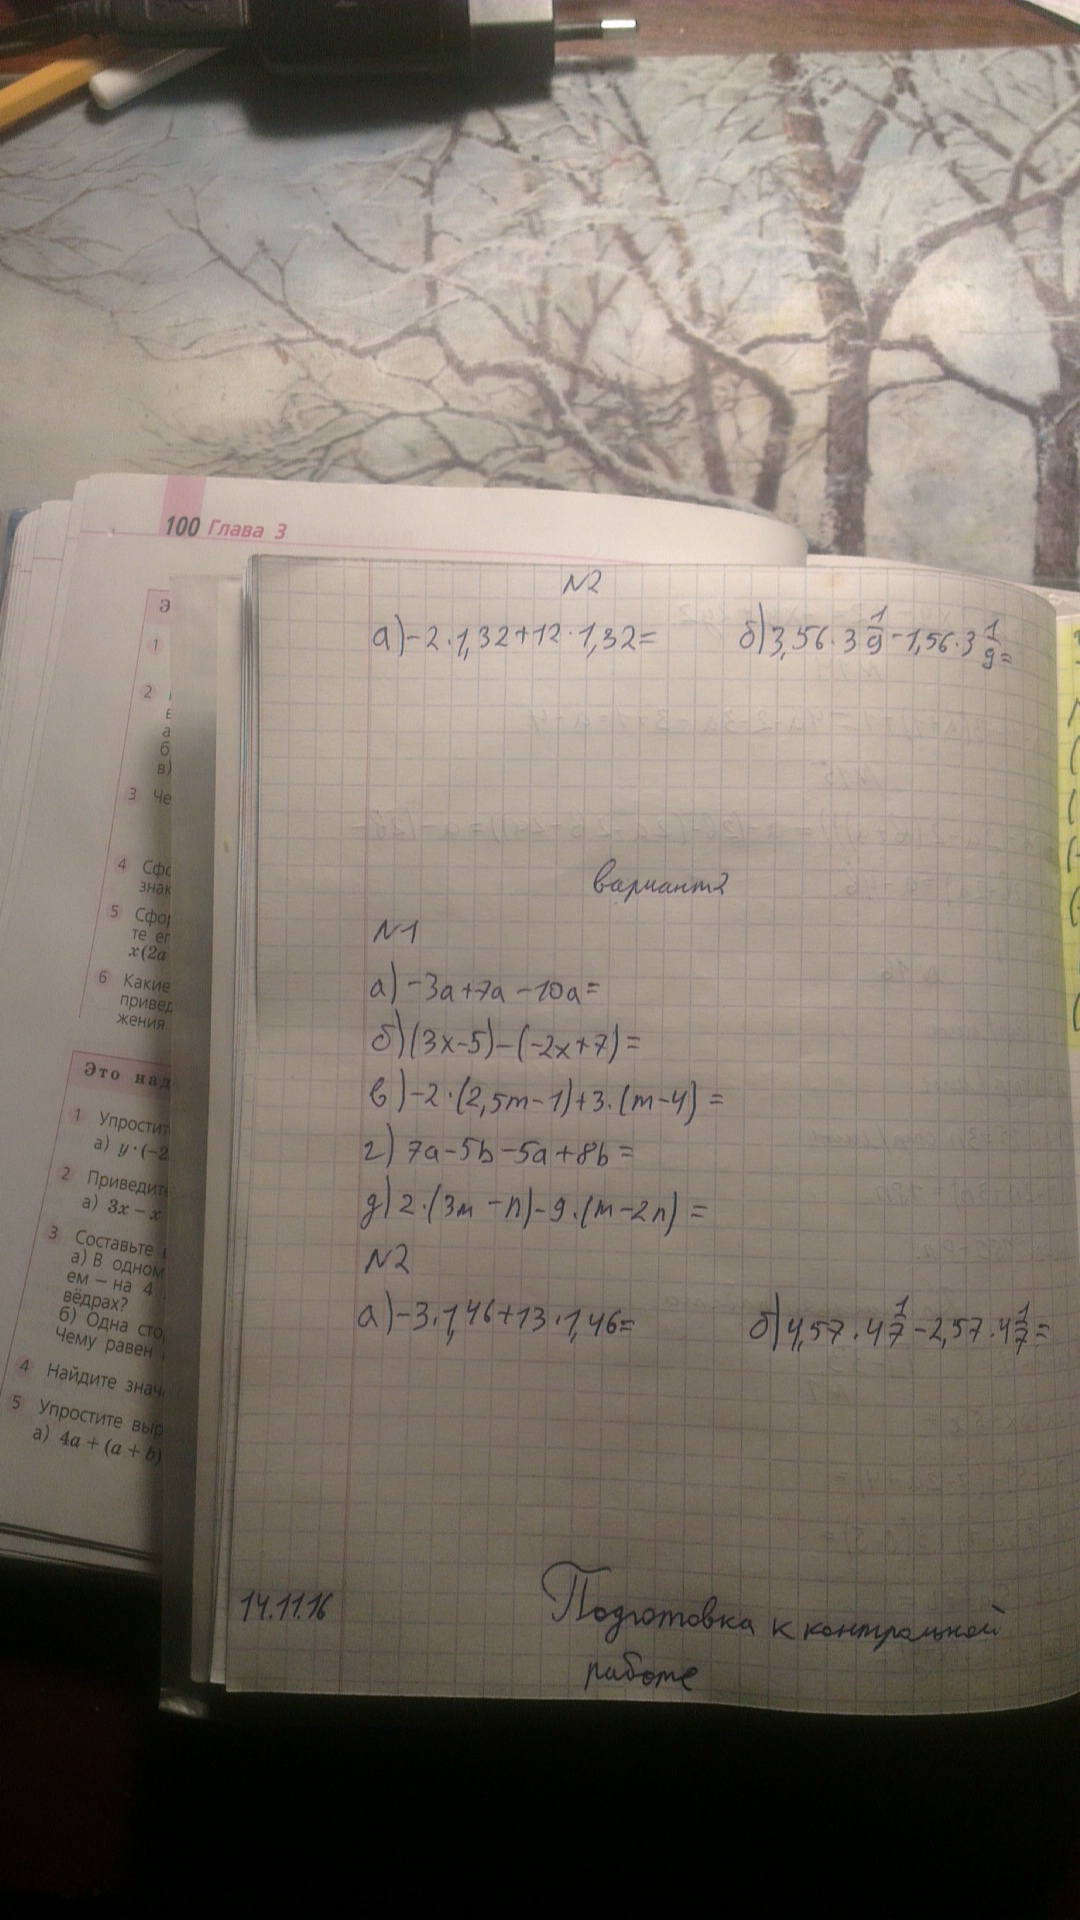 100 Глава 3
1
2
б
в)
3 Че
4 Сфо
знак
5 Сфор
те ег
x(2a
6 Какие
привед
жения
Это над
1 Упростит
а) y·(−2
2 Приведите
а) 3x − x
3 Составьте
а) В одном
ем – на 4
вёдрах?
б) Одна сто
Чему равен
4 Найдите знач
5 Упростите выр
а) 4a + (a + b)
N2
а) -2·1,32+12·1,32=
б) 3,56·3 1/9-1,56·3 1/9=
вариант 2
N1
а) -3a+7a-10a=
б) (3x-5)-(-2x+7)=
в) -2·(2,5m-1)+3·(m-4)=
г) 7a-5b-5a+8b=
д) 2·(3m-n)-9·(m-2n)=
N2
а) -3·1,46+13·1,46=
б) 4,57·4 1/7-2,57·4 1/7=
14.11.16
Подготовка к контрольной
работе